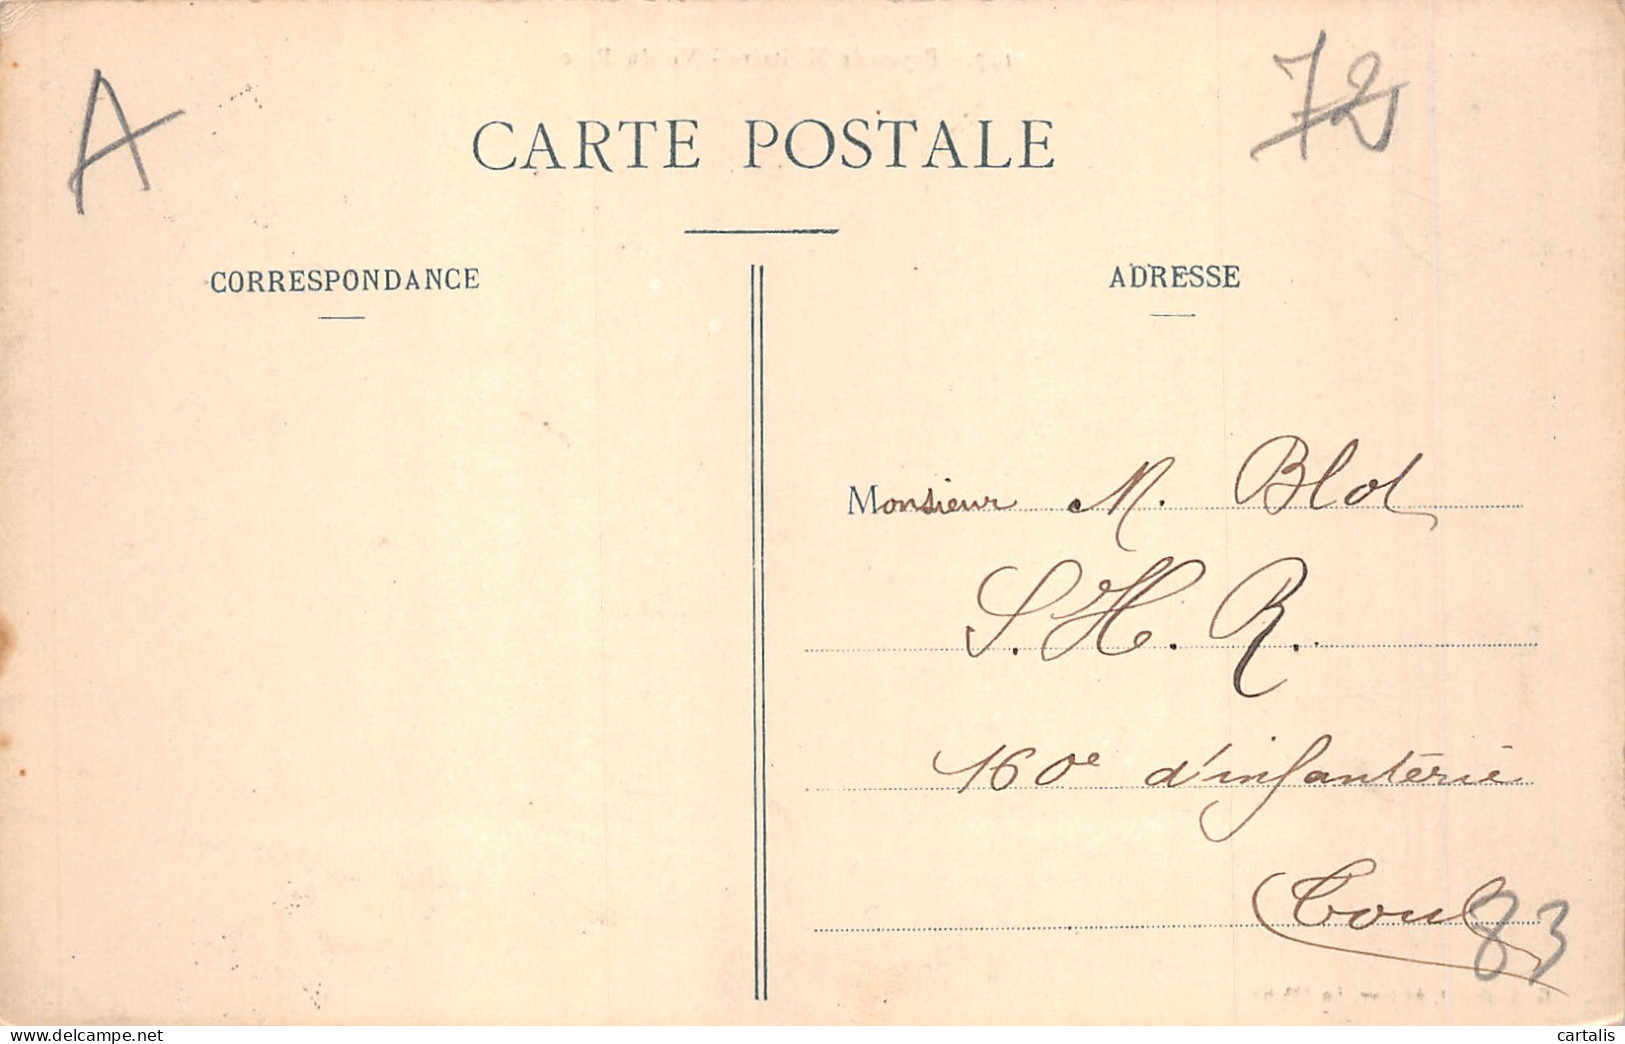 A
72
CARTE POSTALE
CORRESPONDANCE
ADRESSE
Monsieur M. Blot
S. H. R.
160e d'infanterie
Toul
83
cartalis